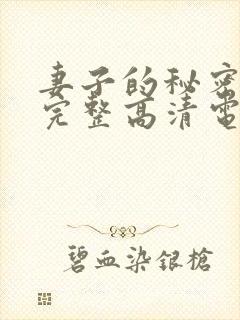 妻子的秘密
完整高清電
碧血染銀槍